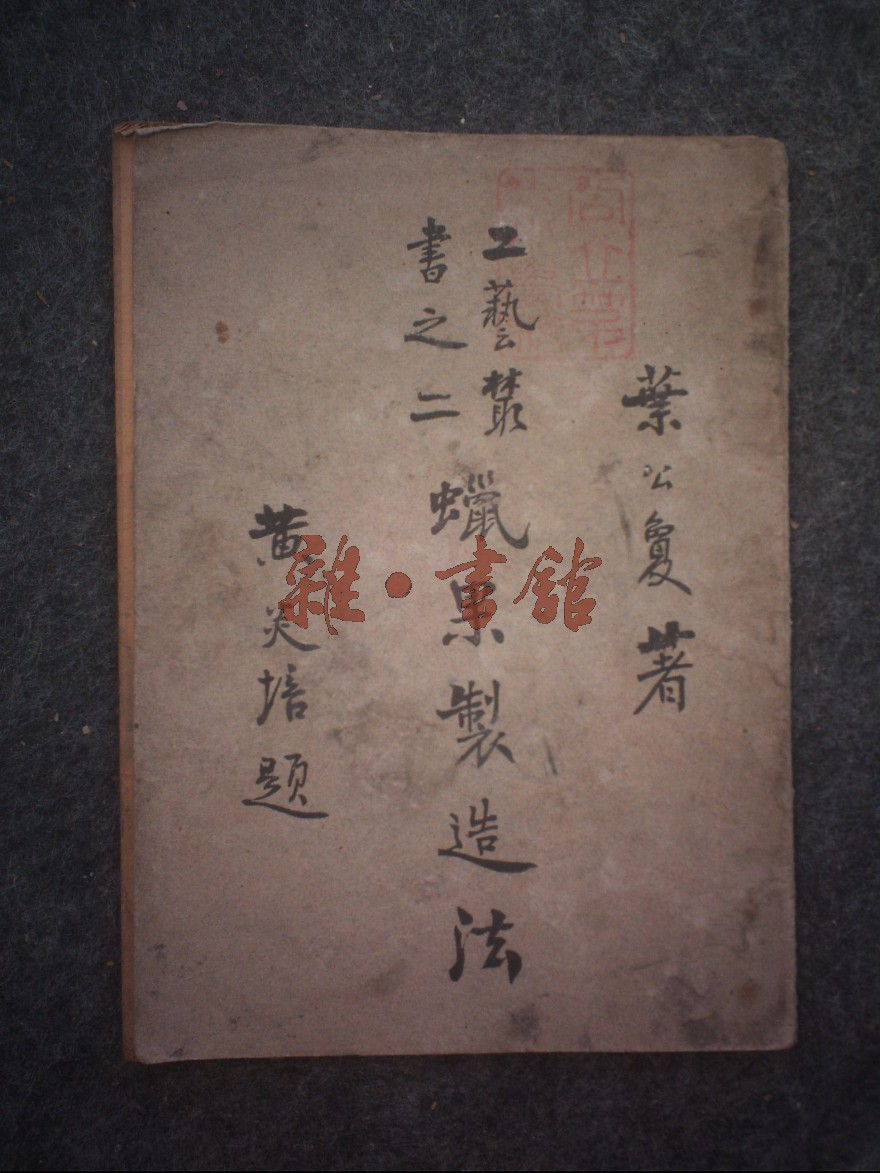 葉公敻著
工藝叢
書之二
蠟果製造法
黄炎培題
雜·書館